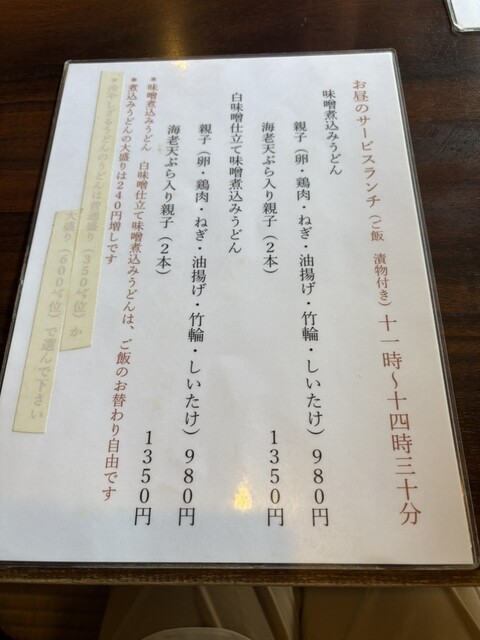 お昼のサービスランチ（ご飯　漬物付き）十一時～十四時三十分
味噌煮込みうどん
親子（卵・鶏肉・ねぎ・油揚げ・竹輪・しいたけ）980円
海老天ぷら入り親子（2本）1350円
白味噌仕立て味噌煮込みうどん
親子（卵・鶏肉・ねぎ・油揚げ・竹輪・しいたけ）980円
海老天ぷら入り親子（2本）1350円
＊味噌煮込みうどん　白味噌仕立て味噌煮込みうどんは、ご飯のお替わり自由です
＊煮込みうどんの大盛りは240円増しです
ざるうどんのうどんは普通盛り（350㌘位）か
大盛り（600㌘位）で選んで下さい